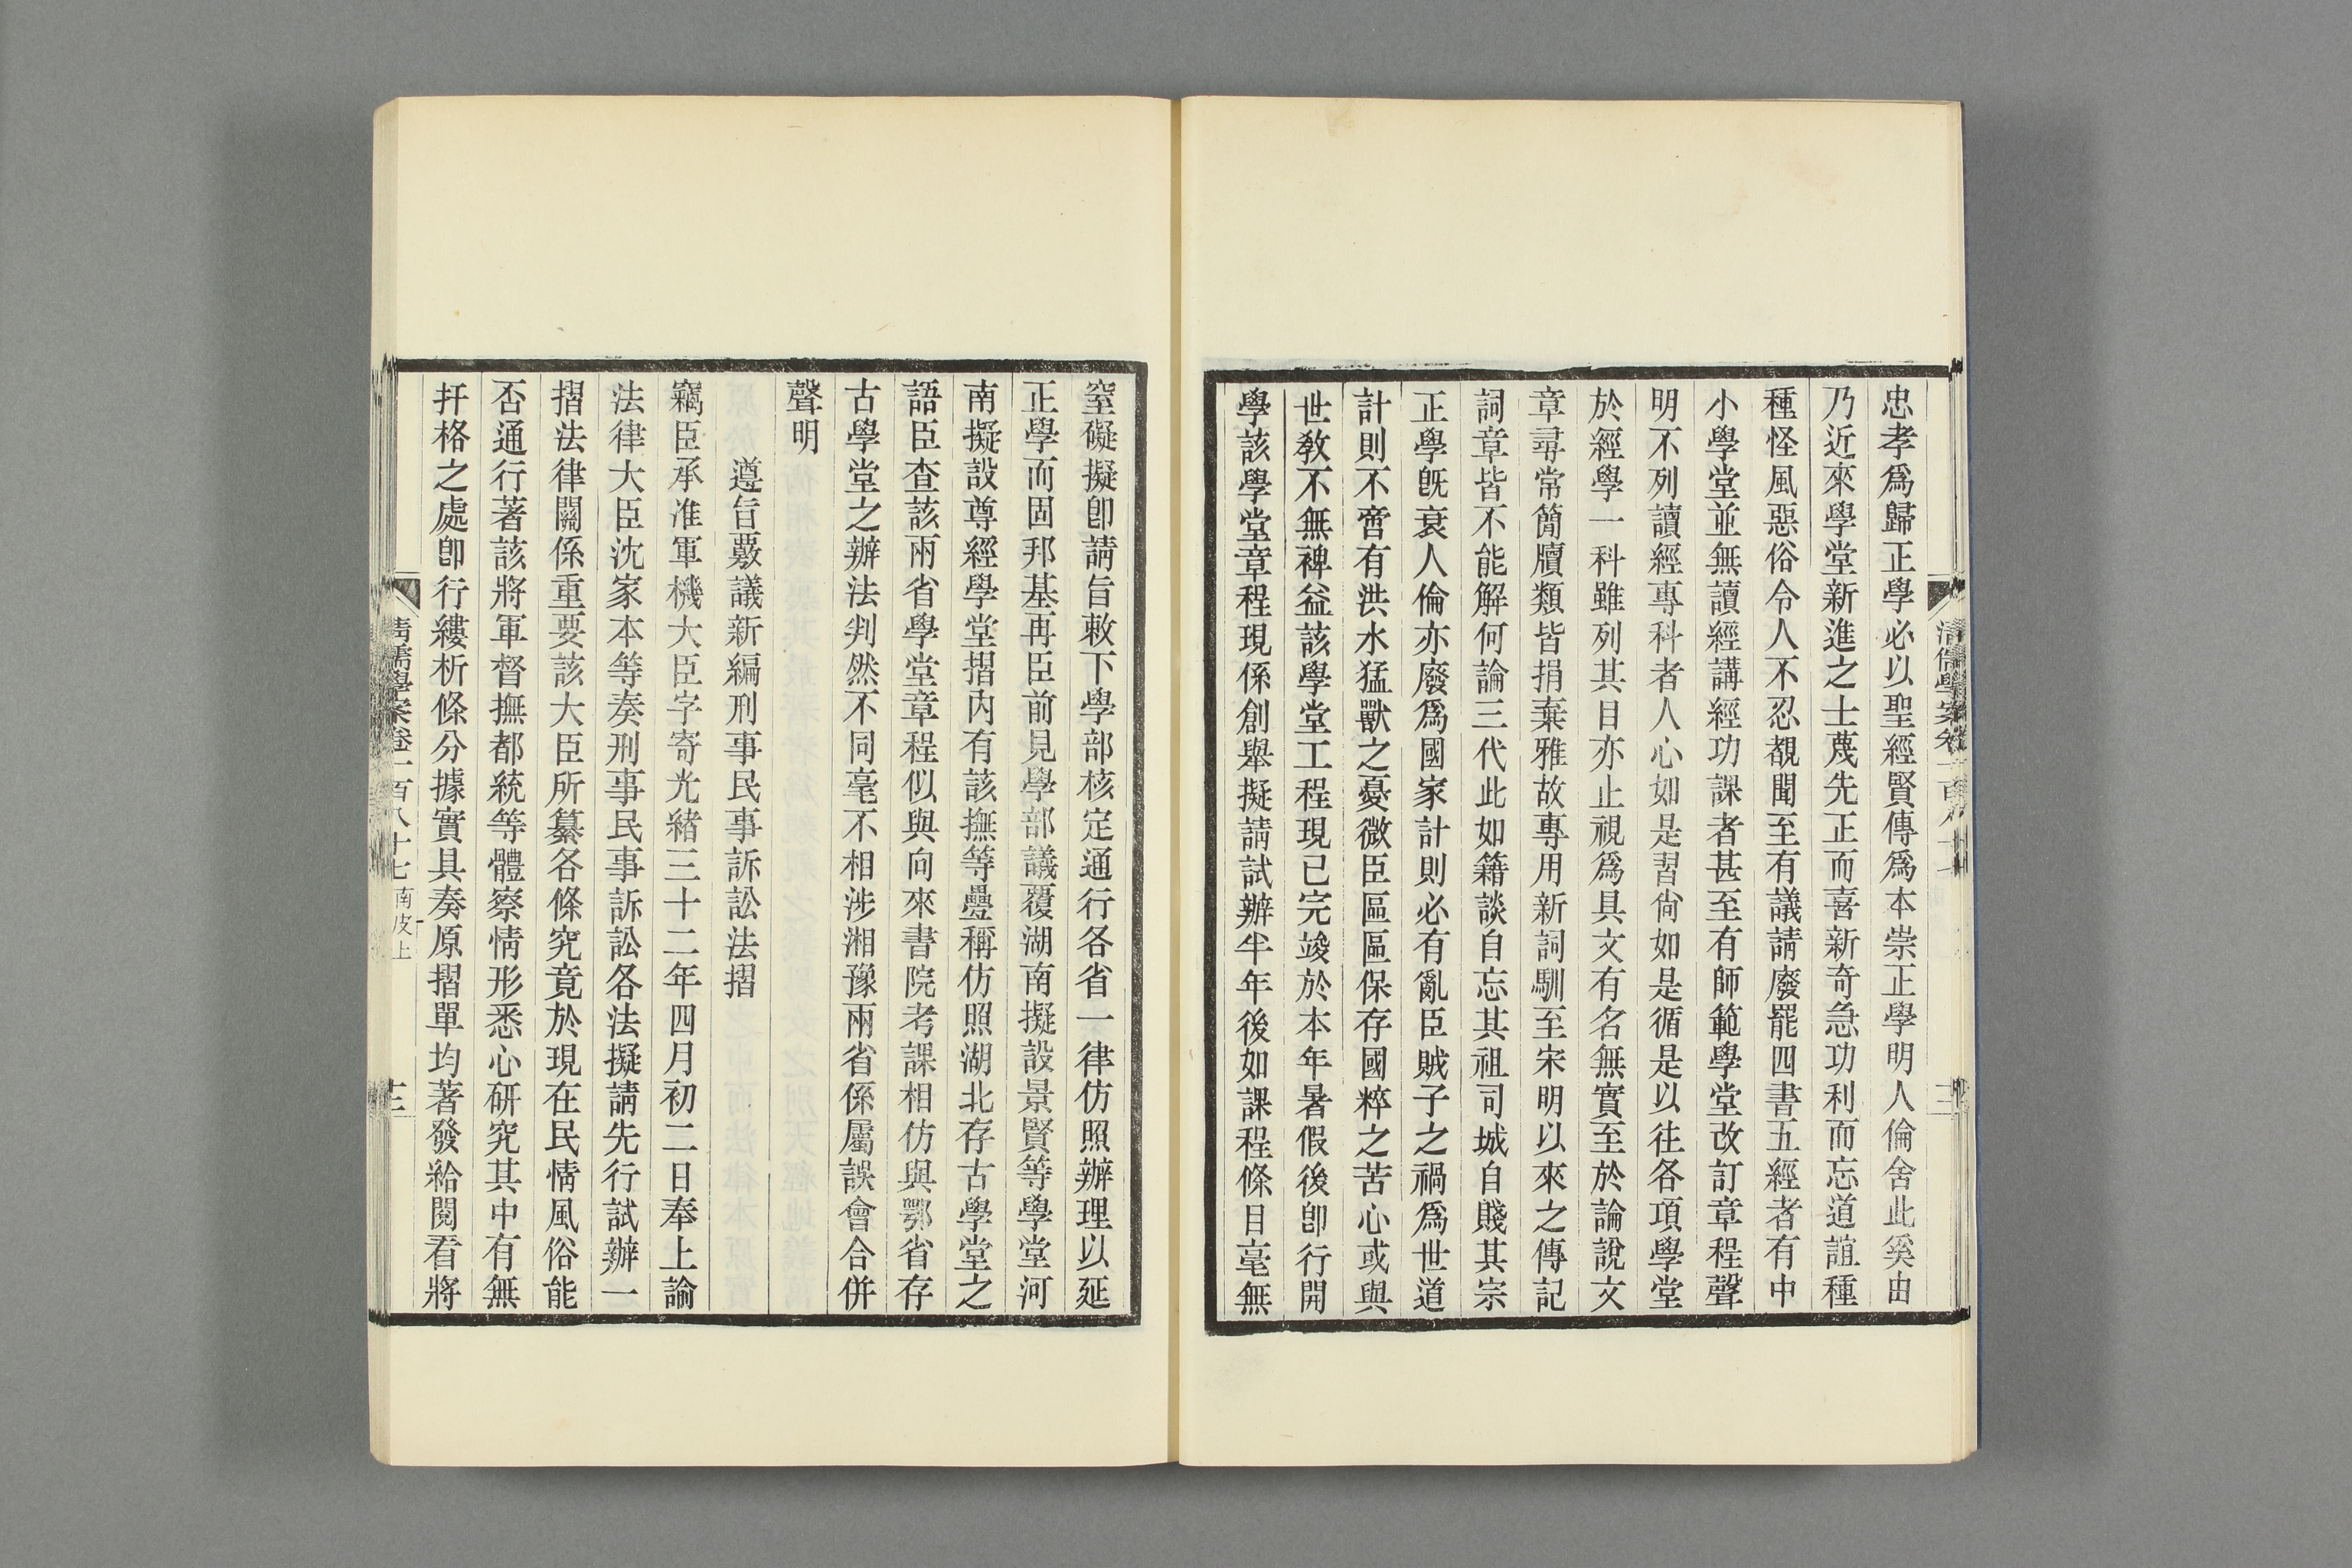 忠孝爲歸正學必以聖經賢傳爲本崇正學明人倫舍此奚由
乃近來學堂新進之士蔑先正而喜新奇急功利而忘道誼種
種怪風惡俗令人不忍覩聞至有議請廢罷四書五經者有中
小學堂並無讀經講經功課者甚至有師範學堂改訂章程聲
明不列讀經專科者人心如是習尙如是循是以往各項學堂
於經學一科雖列其目亦止視爲具文有名無實至於論說文
章尋常簡牘類皆捐棄雅故專用新詞馴至宋明以來之傳記
詞章皆不能解何論三代此如籍談自忘其祖司城自賤其宗
正學旣衰人倫亦廢爲國家計則必有亂臣賊子之禍爲世道
計則不啻有洪水猛獸之憂微臣區區保存國粹之苦心或與
世敎不無裨益該學堂工程現已完竣於本年暑假後卽行開
學該學堂章程現係創舉擬請試辦半年後如課程條目毫無
窒礙擬卽請旨敕下學部核定通行各省一律仿照辦理以延
正學而固邦基再臣前見學部議覆湖南擬設景賢等學堂河
南擬設尊經學堂摺內有該撫等疊稱仿照湖北存古學堂之
語臣查該兩省學堂章程似與向來書院考課相仿與鄂省存
古學堂之辦法判然不同毫不相涉湘豫兩省係屬誤會合併
聲明
遵旨覈議新編刑事民事訴訟法摺
竊臣承准軍機大臣字寄光緒三十二年四月初二日奉上諭
法律大臣沈家本等奏刑事民事訴訟各法擬請先行試辦一
摺法律關係重要該大臣所纂各條究竟於現在民情風俗能
否通行著該將軍督撫都統等體察情形悉心研究其中有無
扞格之處卽行縷析條分據實具奏原摺單均著發給閱看將
清儒學案卷一百八十七 南皮上